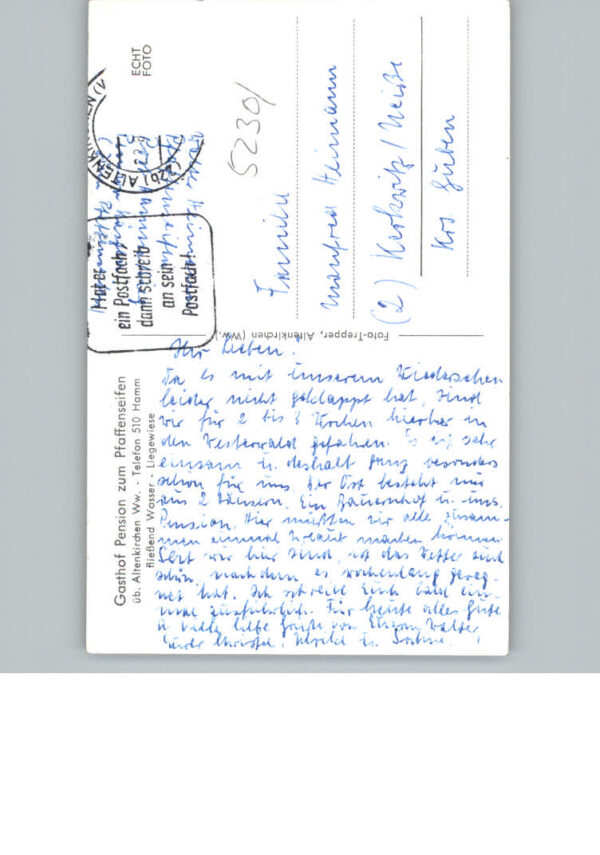 Gasthof Pension zum Pfaffenseifen
üb. Altenkirchen Ww. - Telefon 510 Hamm
fließend Wasser - Liegewiese
Ihr Lieben!
Da es mit unserem Wiedersehen
leider nicht geklappt hat, sind
wir für 2 bis 3 Wochen hierher in
den Westerwald gefahren. Es ist sehr
einsam u. deshalb ganz besonders
schön für uns. Der Ort besteht nur
aus 2 Häusern. Ein Bauernhof u. uns.
Pension. Hier müßten wir alle zusam-
men einmal Urlaub machen können.
Seit wir hier sind, ist das Wetter auch
schön, nachdem es wochenlang gereg-
net hat. Ich schreibe Euch bald ein-
mal ausführlich. Für heute alles Gute
u. viele liebe Grüße von Eurem Walter
Foto-Trepper, Altenkirchen (Ww.)
ECHT
FOTO
(22b) ALTENKIRCHEN
Haben
ein Postfach?
dann schreib
an sein
Postfach!
5230/
Familie
Manfred Heimann
(2) Kerkwitz/Neiße
Krs Guben